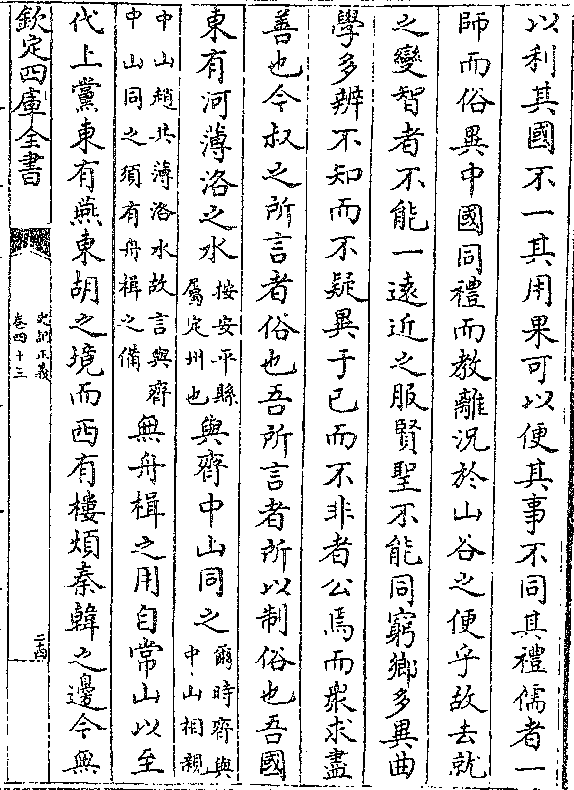 以利其國不一其用果可以便其事不同其禮儒者一
師而俗異中國同禮而教離況於山谷之便乎故去就
之變智者不能一遠近之服賢聖不能同窮鄉多異曲
學多辨不知而不疑異于己而不非者公焉而衆求盡
善也今叔之所言者俗也吾所言者所以制俗也吾國
東有河薄洛之水按安平縣屬定州也與齊中山同之爾時齊與中山相親
中山趙共薄洛水故言與齊中山同之須有舟楫之備無舟楫之用自常山以至
代上黨東有燕東胡之境而西有樓煩秦韓之邊今無
欽定四庫全書
史記正義
卷四十三
二十四